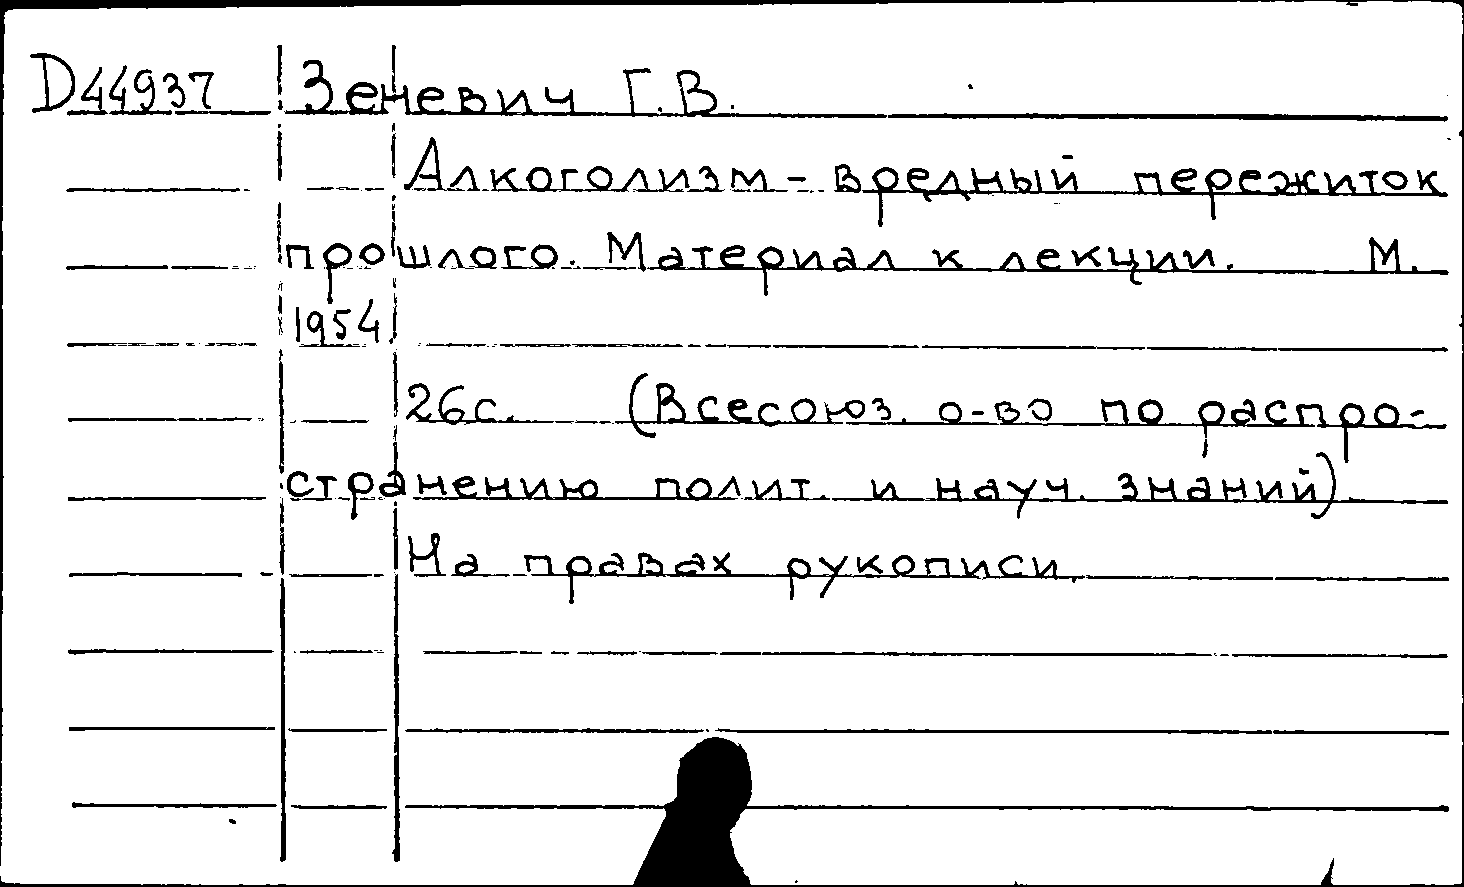 D44937 Зеневич Г.В.
Алкоголизм - вредный пережиток
прошлого. Материал к лекции. М.
1954
26с. (Всесоюз. о-во по распро-
странению полит. и науч. знаний).
На правах рукописи.